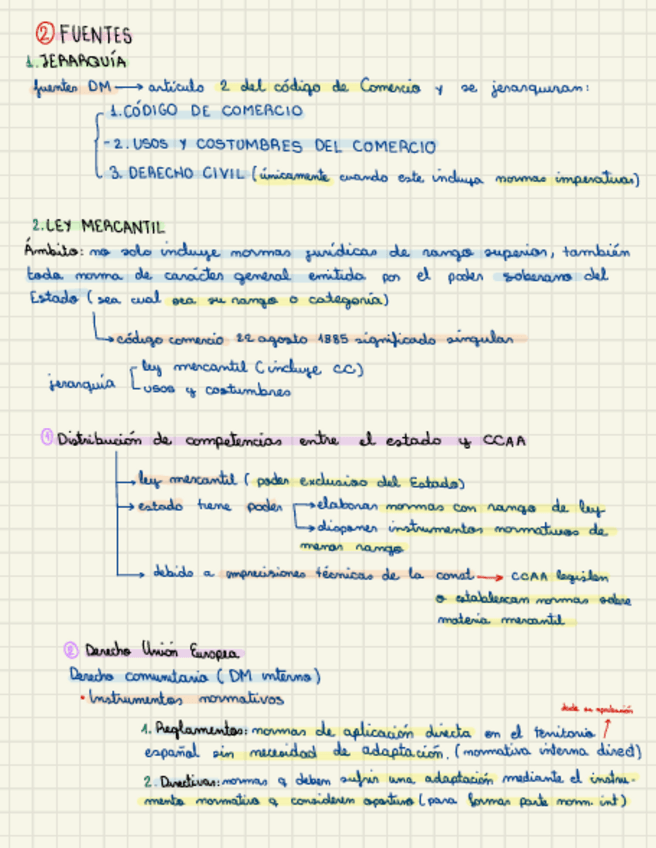 ② FUENTES
1. JERARQUÍA
fuentes DM → artículo 2 del código de Comercio y se jerarquizan:
1. CÓDIGO DE COMERCIO
- 2. USOS Y COSTUMBRES DEL COMERCIO
3. DERECHO CIVIL (únicamente cuando este incluya normas imperativas)
2. LEY MERCANTIL
Ámbito: no solo incluye normas jurídicas de rango superior, también
toda norma de carácter general emitida por el poder soberano del
Estado (sea cual sea su rango o categoría)
código comercio 22 agosto 1885 significado singular
jerarquía
ley mercantil (incluye CC)
usos y costumbres
① Distribución de competencias entre el estado y CCAA
→ ley mercantil (poder exclusivo del Estado)
→ estado tiene poder → elaborar normas con rango de ley
→ disponer instrumentos normativos de
menor rango
→ debido a imprecisiones técnicas de la const → CCAA legislen
o establezcan normas sobre
materia mercantil
② Derecho Unión Europea
Derecho comunitario (DM interno)
• Instrumentos normativos
desde su aprobación
1. Reglamentos: normas de aplicación directa en el territorio
español sin necesidad de adaptación. (normativa interna direct)
2. Directivas: normas q deben sufrir una adaptación mediante el instru-
mento normativo q consideren oportuno (para formar parte norm. int)